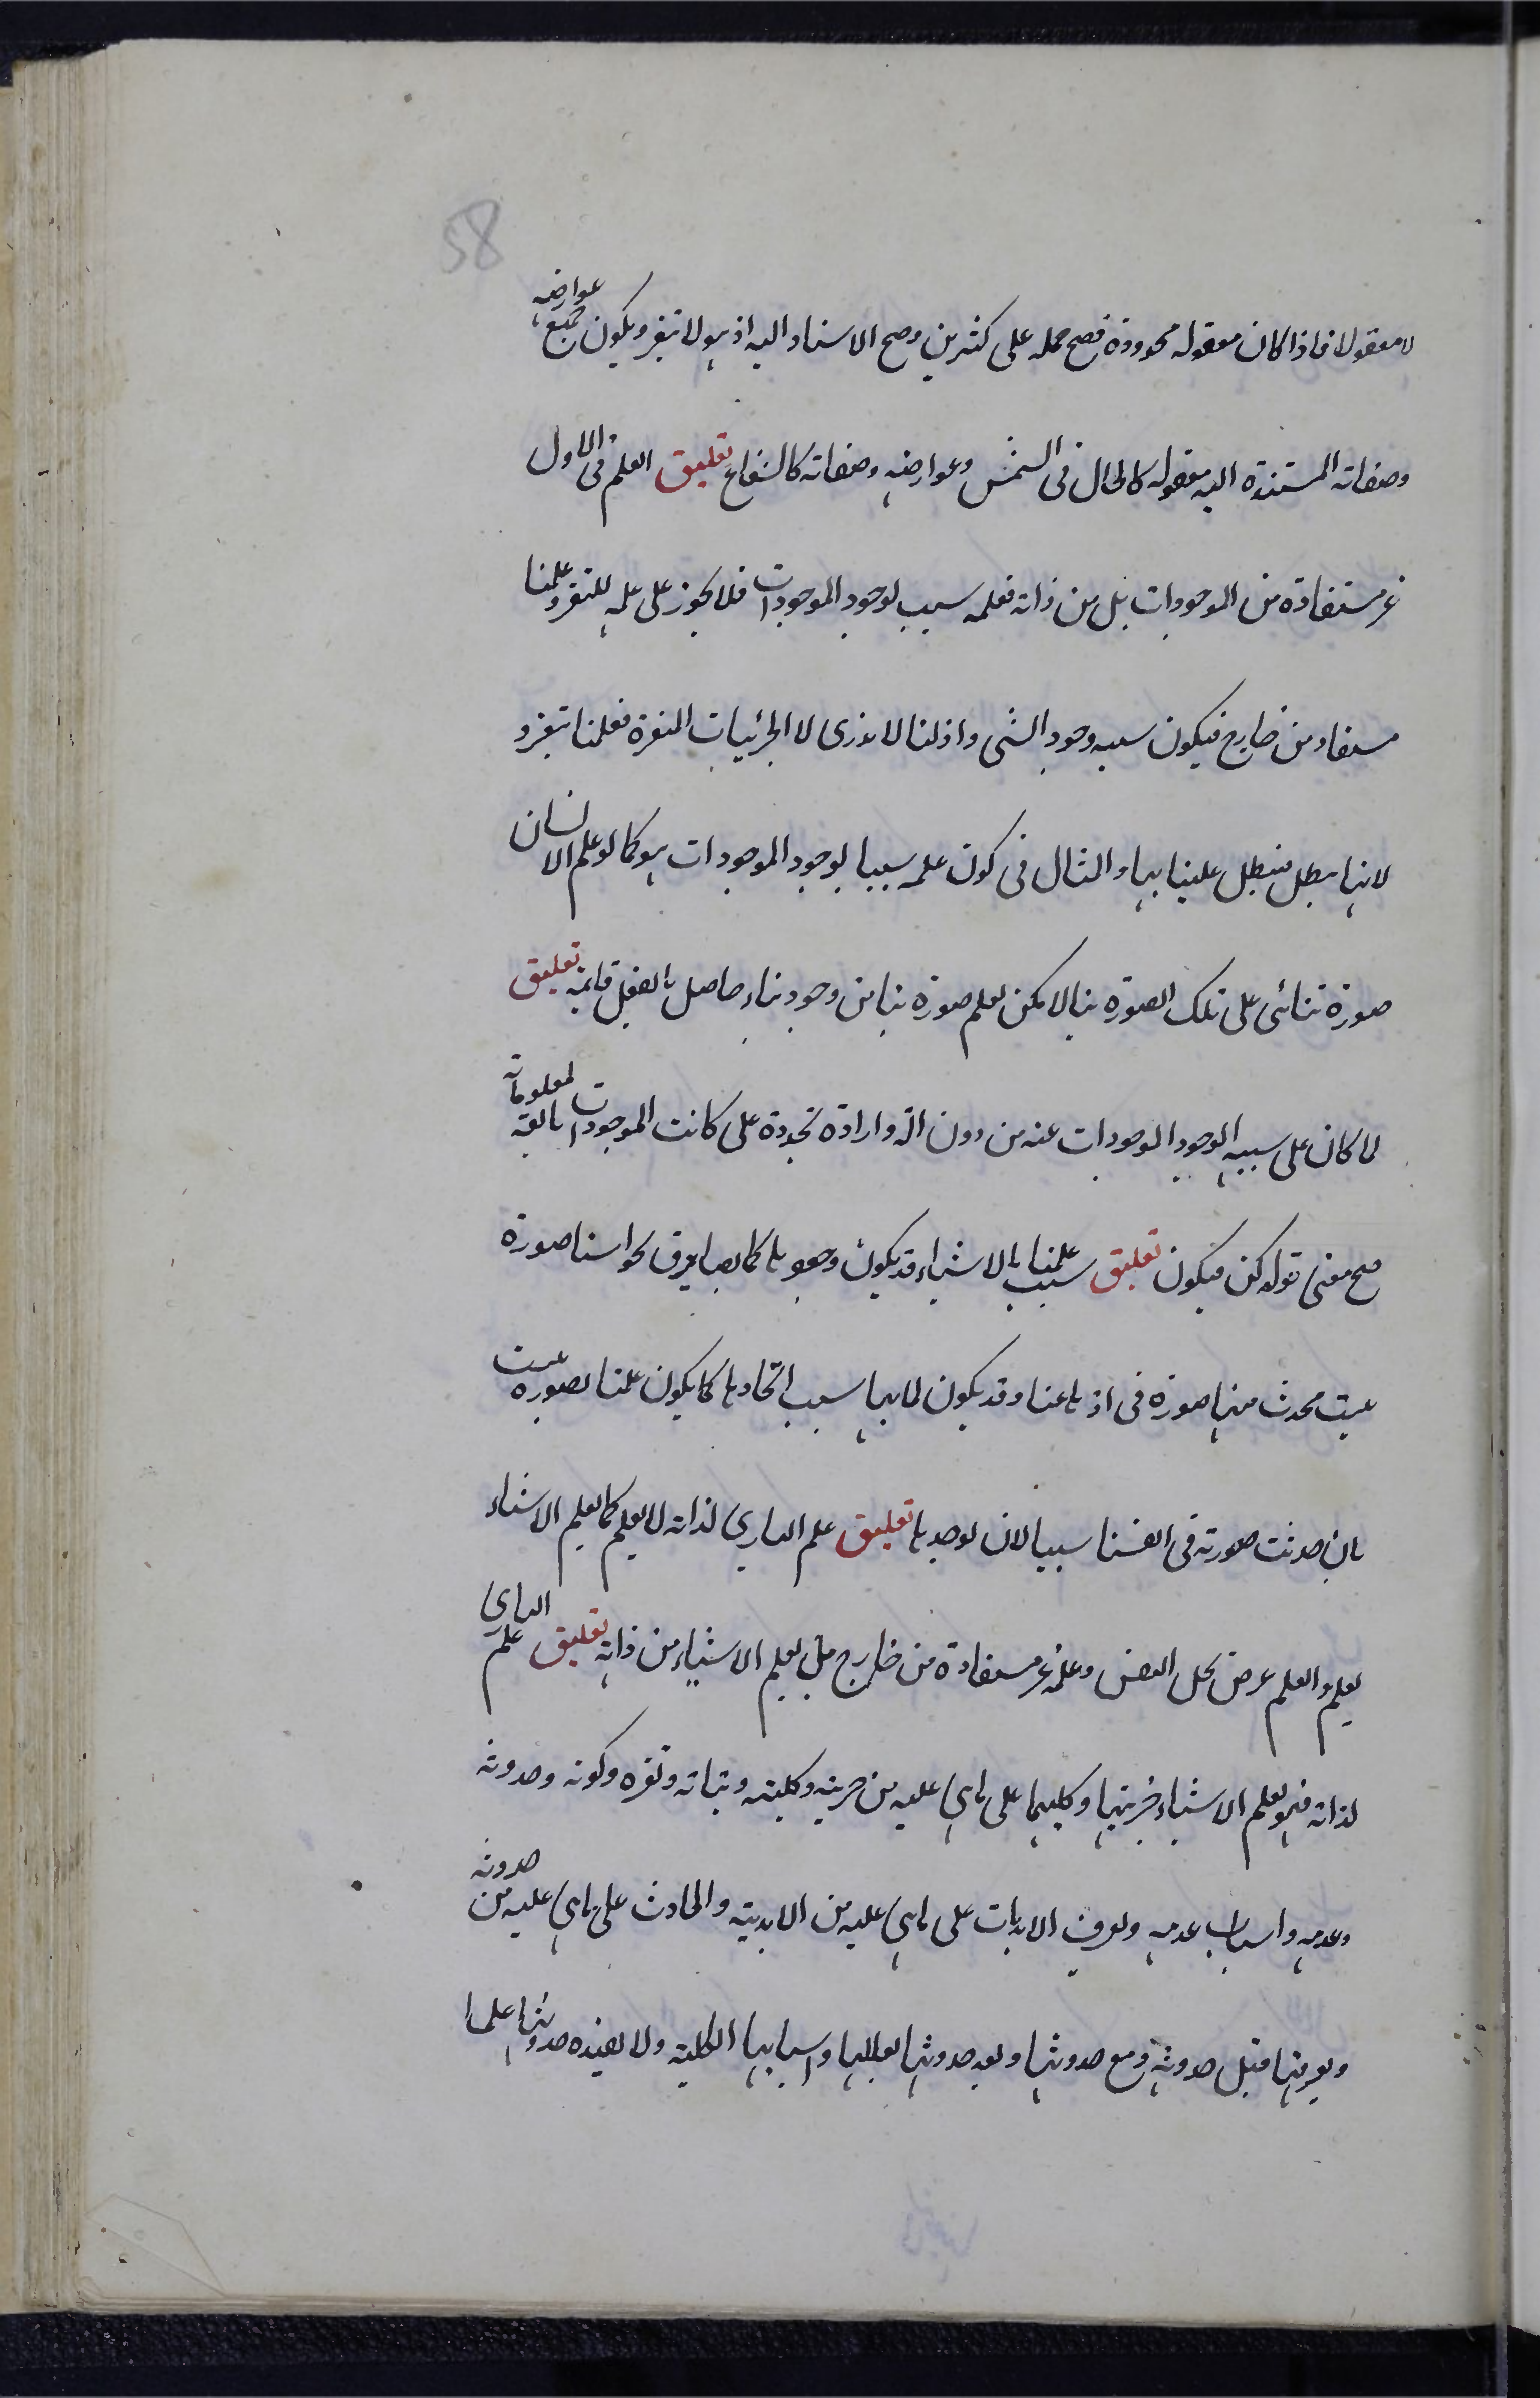 58
لا معقولا فاذا كان معقوله محدودة فصح حمله على كثيرين وصح الاسناد اليه اذ هو لا تغير ويكون جميع عوارضه
وصفاته المستندة اليه معقوله كالحال فى الشمس وعوارضه وصفاته كالشعاع تعليق العلم فى الاول
غير مستفادة من الموجودات بل من ذاته فعلمه سبب لوجود الموجودات فلا يجوز على علمه للتغير وعلمنا
مستفاد من خارج فيكون سببه وجود الشى واذ لنا لا ندرى لا الجزئيات المتغيرة فعلمنا تتغير و
لانها يبطل فيبطل علينا بها والمثال فى كون علمه سببا لوجود الموجودات هو كما لو علم الانسان
صورة بناء على تلك الصورة بنا لا يمكن لعلم صورة بنا من وجود بناء حاصل بالفعل قائمة تعليق
لما كان على سببه الوجود الموجودات عنه من دون الة وارادة متجددة على كانت الموجودات تابعة لمعلوماته
صح معنى قوله كن فيكون تعليق علمنا بالاشياء قد يكون سبب وجودها كما يصادف بحواسنا صورة
بيت محدث منها صورة فى اذهاننا وقد يكون لما بها سبب ايجادها كما يكون علمنا بصورة بيت
بان حدثت صورته فى انفسنا سببا لان نوجدها تعليق علم البارى لذاته لا يعلم كما يعلم الاشياء
يعلم والعلم عرض يحل النفس وعلمه غير مستفادة من خارج بل يعلم الاشياء من ذاته تعليق علم البارى
لذاته فهو يعلم الاشياء جزئيتها وكليها على ما هى عليه من جزئيه وكليته وثباته وتغيره وكونه وحدوثه
وعدمه واسباب عدمه ويعرف الابديات على ما هى عليه من الابدية والحادث على ما هى عليه من حدوثه
ويعرفها قبل حدوثه ومع حدوثها وبعد حدوثها بعللها واسبابها الكلية ولا يفيده حدوثها علما